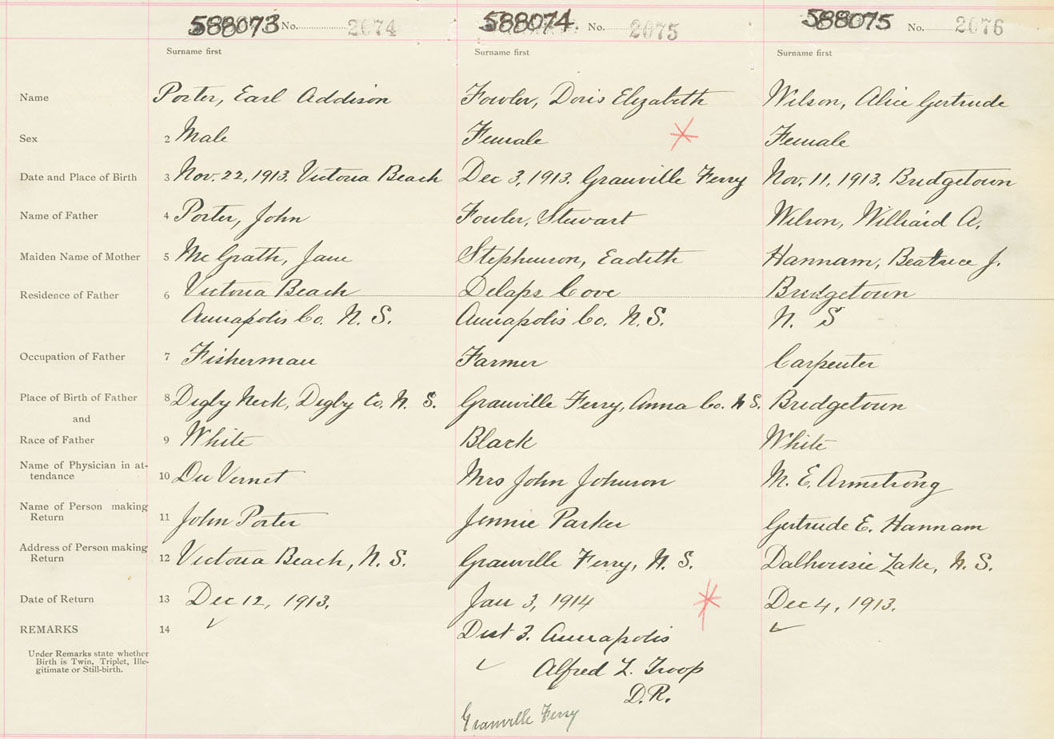 588073 No. 2074 588074 No. 2075 588075 No. 2076
Surname first Surname first Surname first
Name Porter, Earl Addison Fowler, Doris Elizabeth Wilson, Alice Gertrude
Sex 2 Male Female Female
Date and Place of Birth 3 Nov. 22, 1913. Victoria Beach Dec 3, 1913. Granville Ferry Nov. 11, 1913. Bridgetown
Name of Father 4 Porter, John Fowler, Stewart Wilson, Williard A.
Maiden Name of Mother 5 Mc Grath, Jane Stephenson, Eadith Hannam, Beatrice J.
Residence of Father 6 Victoria Beach Delaps Cove Bridgetown
Annapolis Co. N. S. Annapolis Co. N. S. N. S
Occupation of Father 7 Fisherman Farmer Carpenter
Place of Birth of Father 8 Digby Neck, Digby Co. N. S. Granville Ferry, Anna Co. N S. Bridgetown
and
Race of Father 9 White Black White
Name of Physician in at-
tendance 10 Du Vernet Mrs John Johnson M. E. Armstrong
Name of Person making
Return 11 John Porter Jennie Parker Gertrude E. Hannam
Address of Person making
Return 12 Victoria Beach, N. S. Granville Ferry, N. S. Dalhousie Lake, N. S.
Date of Return 13 Dec 12, 1913. Jan 3, 1914 Dec 4, 1913.
REMARKS 14 Dist 3. Annapolis
Under Remarks state whether
Birth is Twin, Triplet, Ille-
gitimate or Still-birth.
Alfred L. Troop
D.R.
Granville Ferry